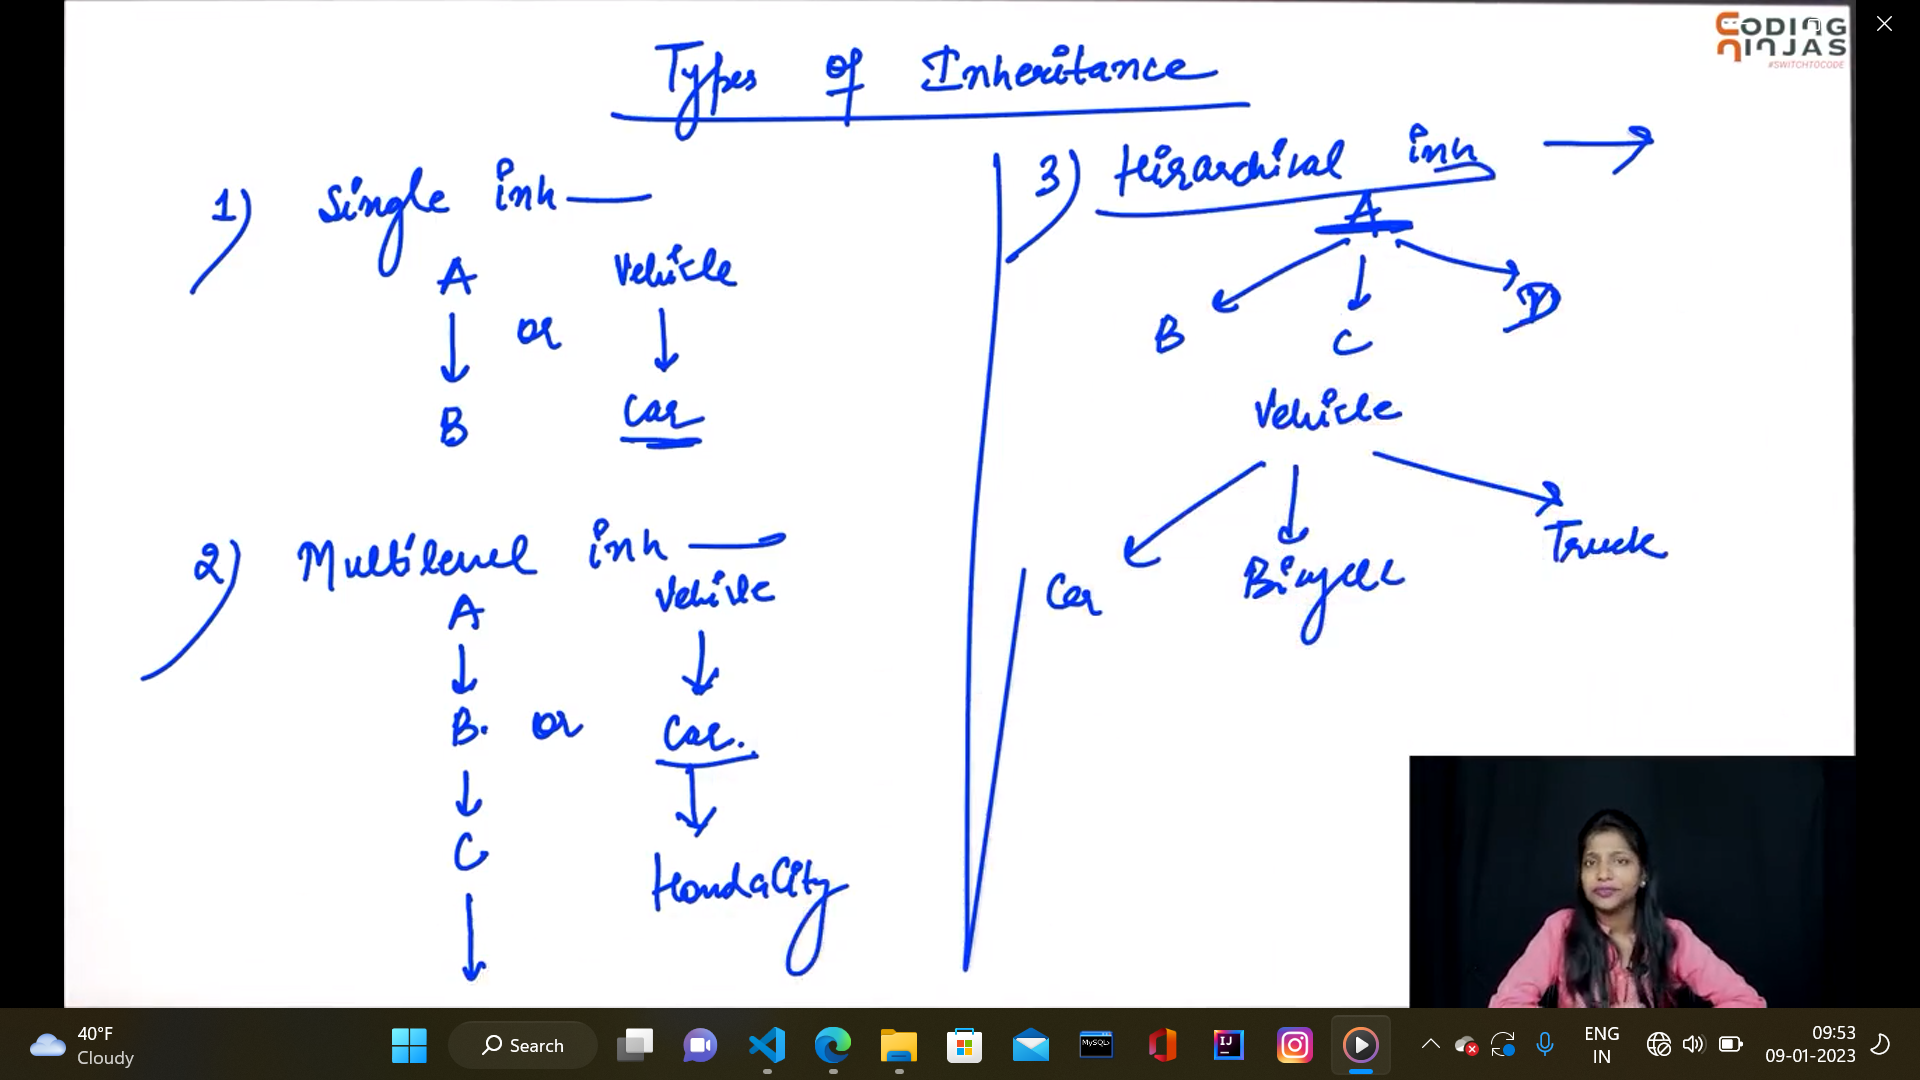 CODING
NINJAS
#SWITCHTOCODE
Types of Inheritance
1) Single inh
A or Vehicle
B Car
2) Multilevel inh
A Vehicle
B. or Car.
C HondaCity
3) Hirarchical inh
A
B C D
Vehicle
Car Bicycle Truck
40°F
Cloudy
Search
MySQL
IJ
ENG
IN
09:53
09-01-2023